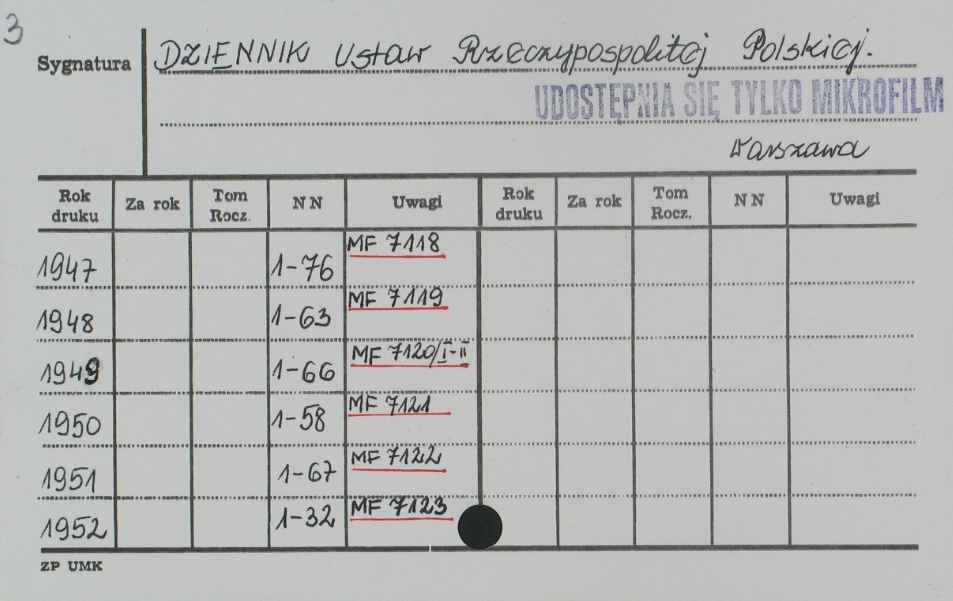 3
Sygnatura DZIENNIK Ustaw Rzeczypospolitej Polskiej.
UDOSTĘPNIA SIĘ TYLKO MIKROFILM
Warszawa
Rok druku Za rok Tom Rocz. NN Uwagi Rok druku Za rok Tom Rocz. NN Uwagi
1947 1-76 MF 7118
1948 1-63 MF 7119
1949 1-66 MF 7120/I-II
1950 1-58 MF 7121
1951 1-67 MF 7122
1952 1-32 MF 7123
ZP UMK